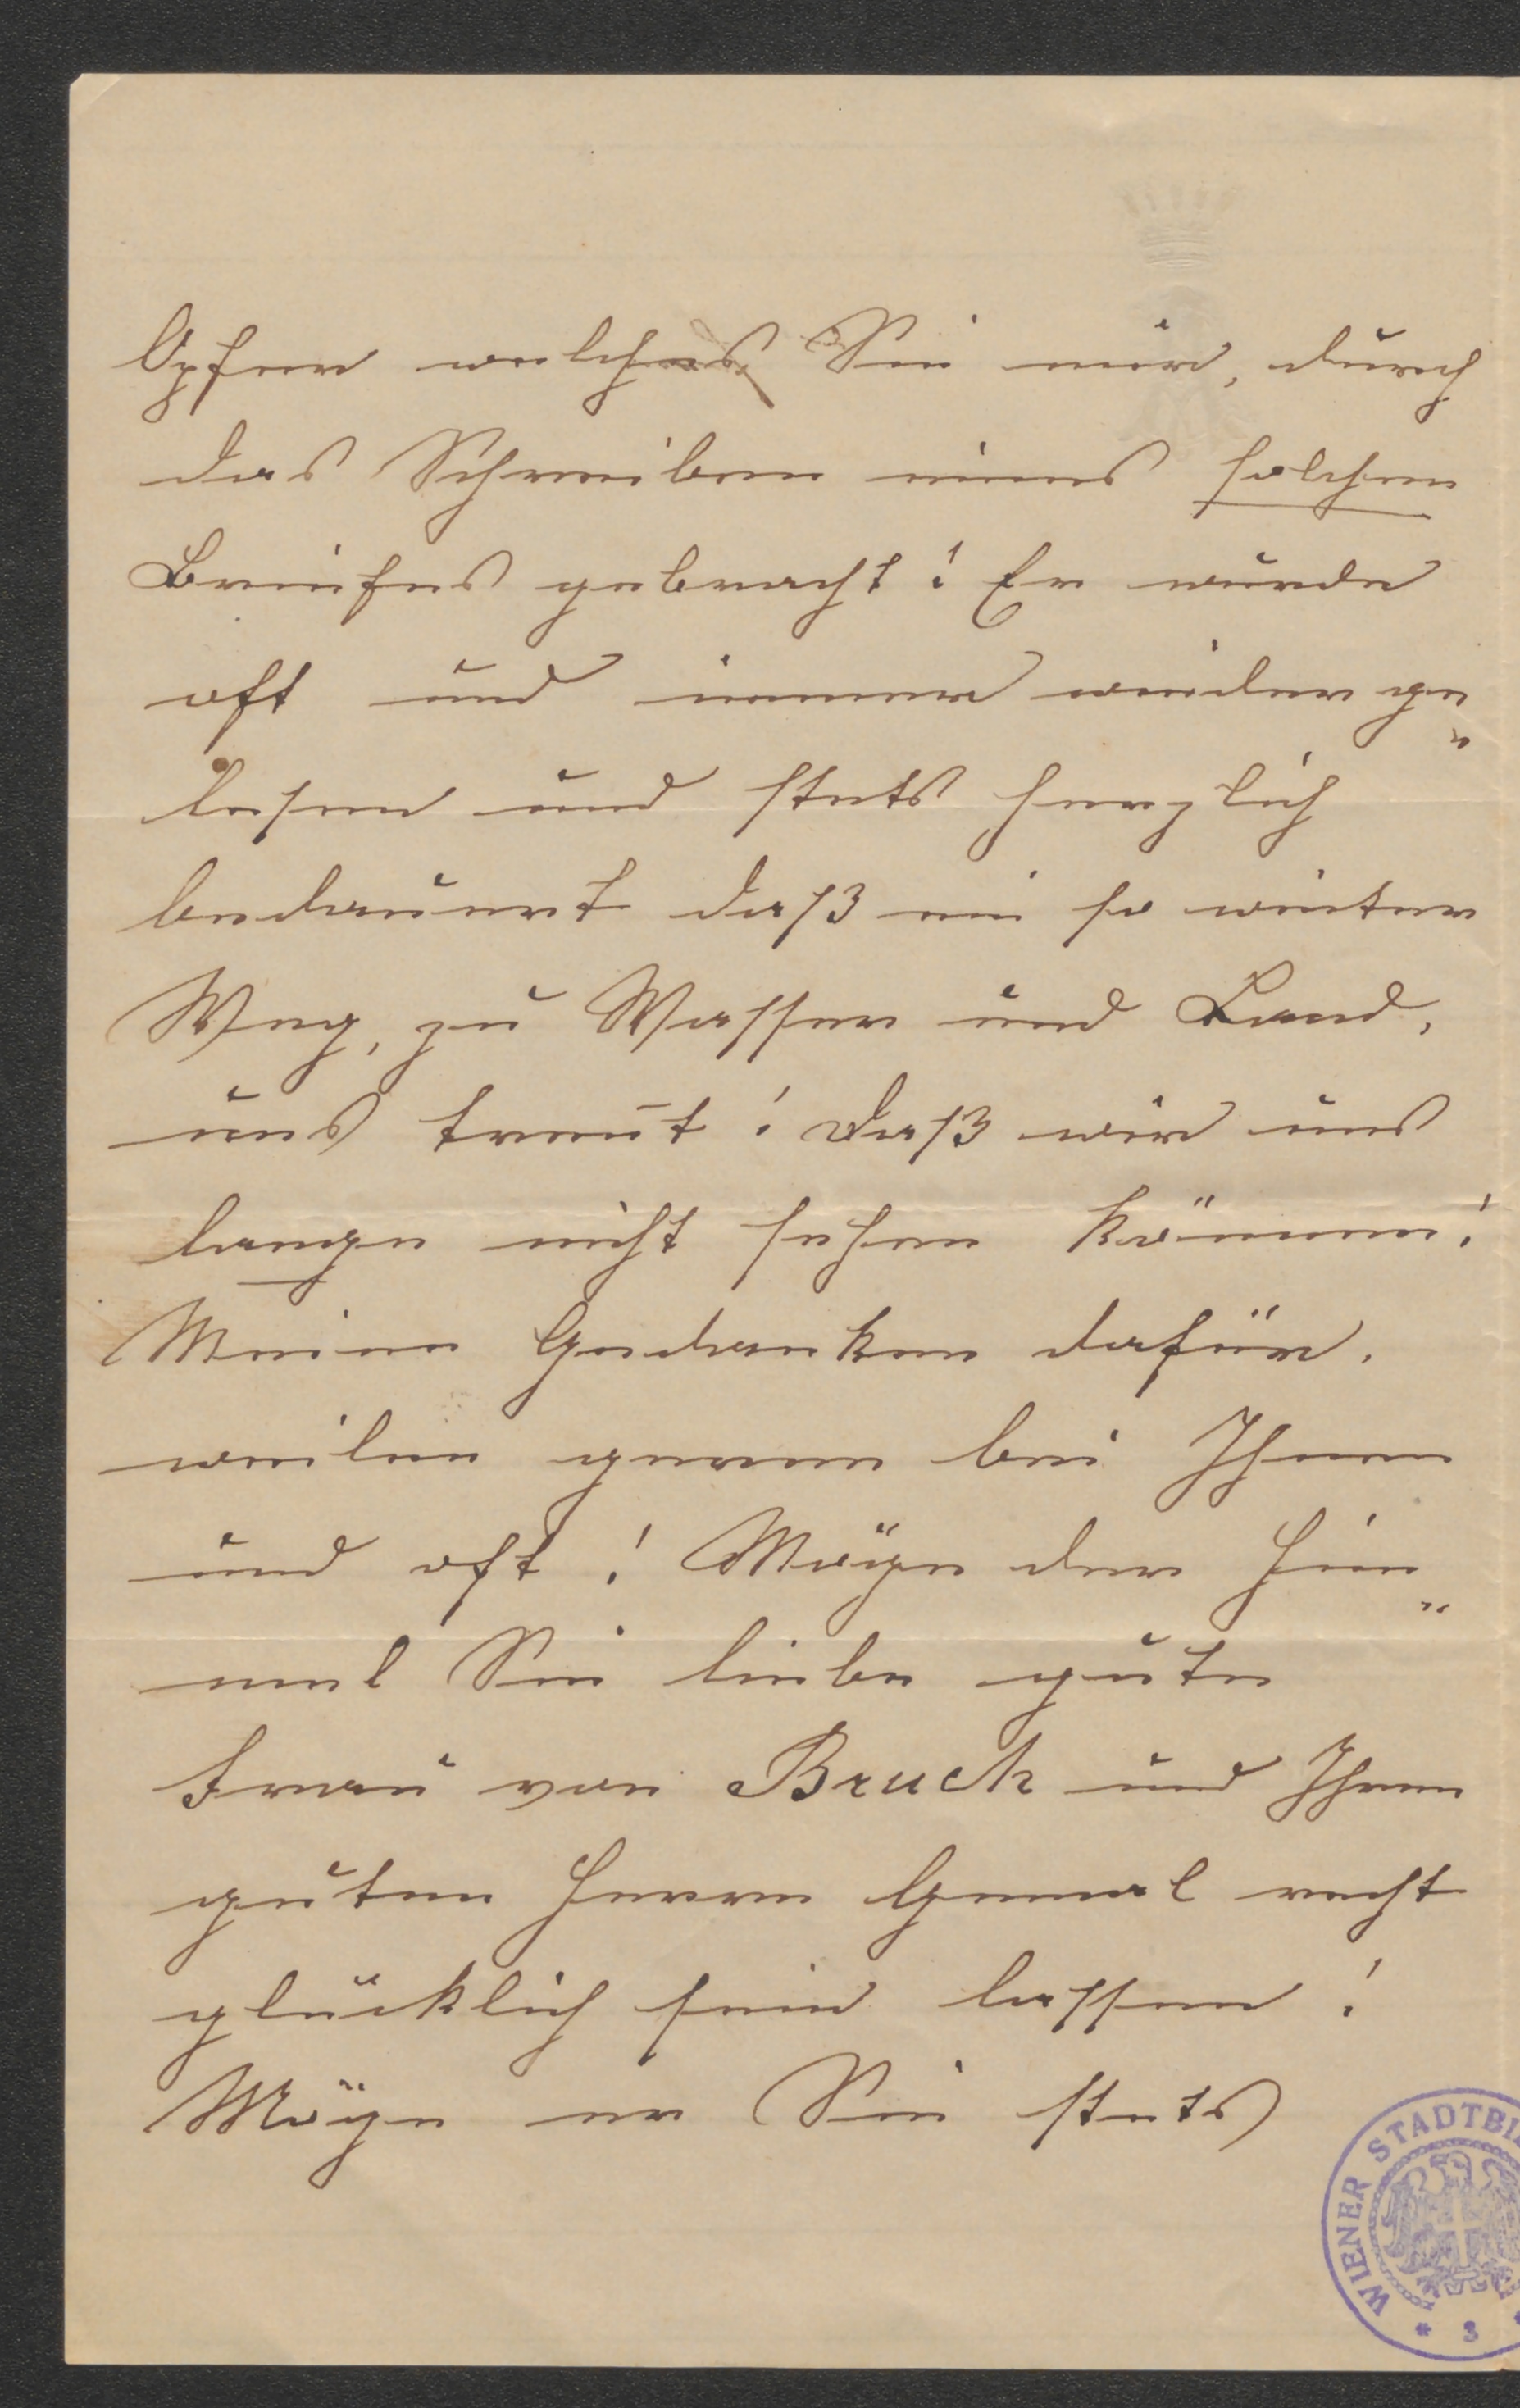 Opfer welches Sie mir, durch
das Schreiben eines solchen
Briefes gebracht! Er wurde
oft und immer wieder ge„
lesen und stets herzlich
bedauert daß ein so weiter
Weg, zu Wasser und Land,
uns trent! Daß wir uns
lange nicht sehen können!
Meine Gedanken dafür,
weilen gerne bei Ihnen
und oft! Möge der Him„
mel Sie liebe gute
Frau von Bruck und Ihren
guten Herrn Gemal recht
glücklich sein lassen!
Möge er Sie stets
WIENER STADTBI
* 3 *